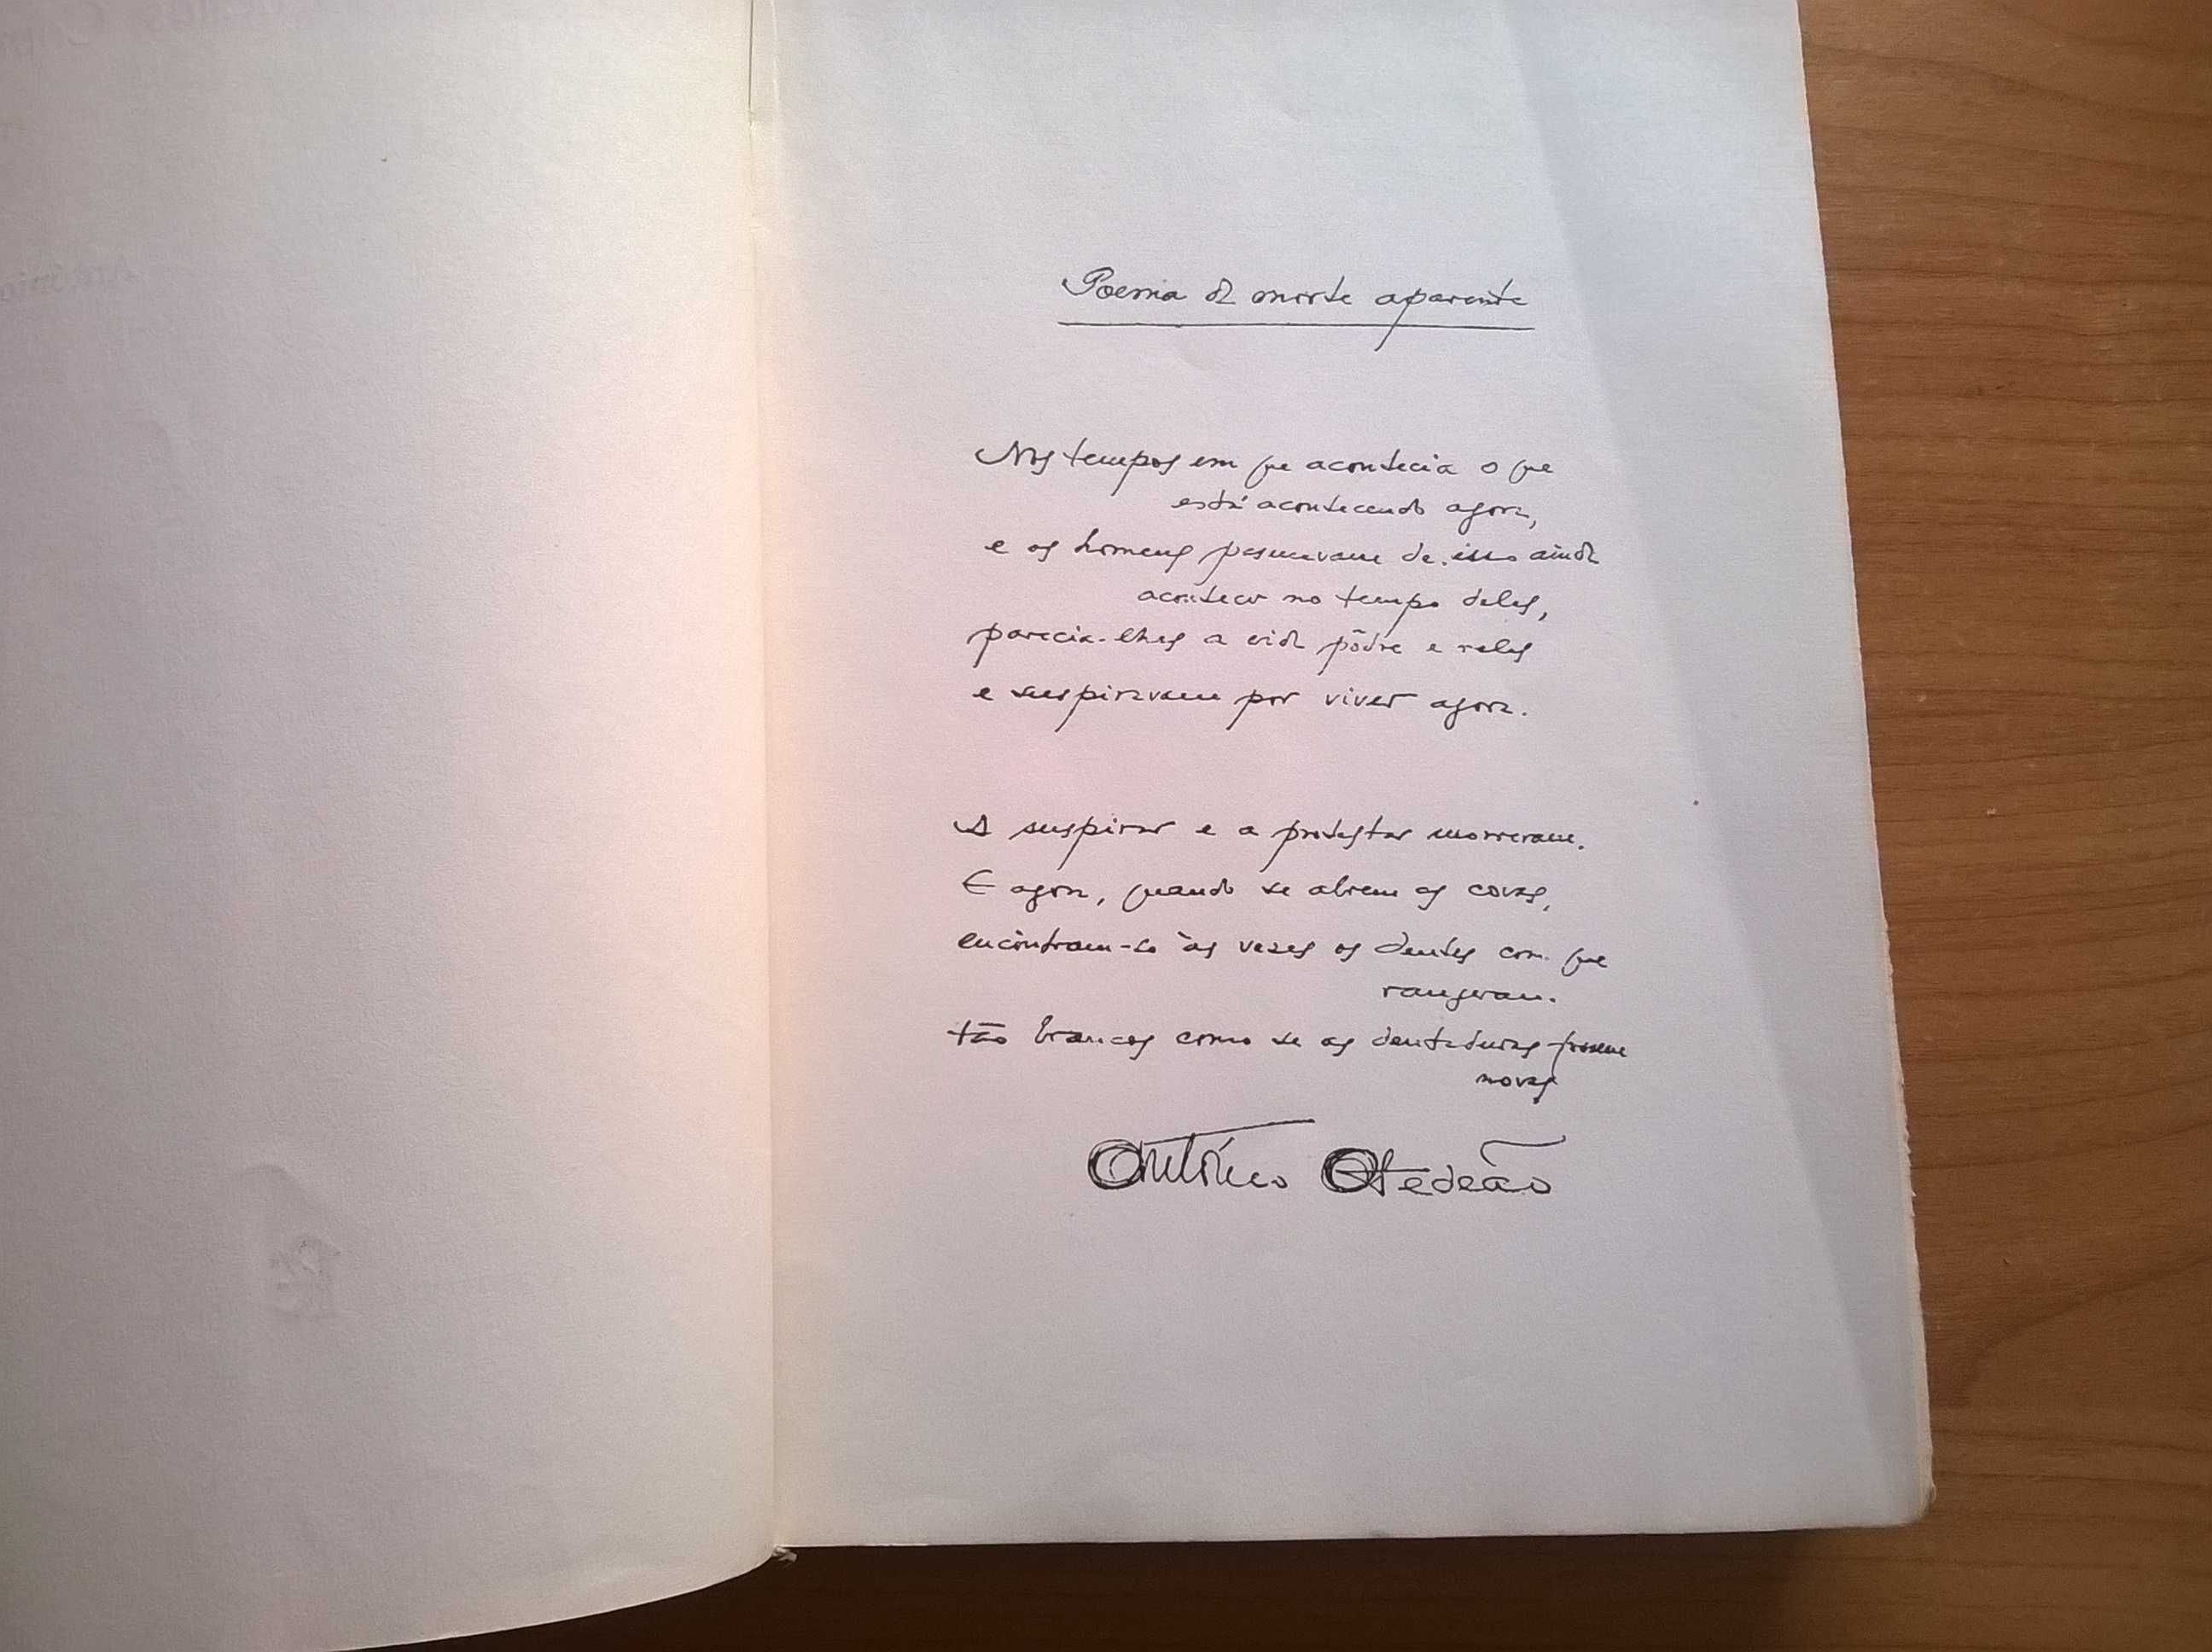 Poema da morte aparente
Nos tempos em que acontecia o que
está acontecendo agora,
e os homens pasmavam de isso ainda
acontecer no tempo deles,
parecia-lhes a vida pôdre e reles
e suspiravam por viver agora.
A suspirar e a protestar morreram.
E agora, quando se abrem as covas,
encontram-se às vezes os dentes com que
rangeram.
tão brancos como se as dentaduras fossem
novas
António Gedeão